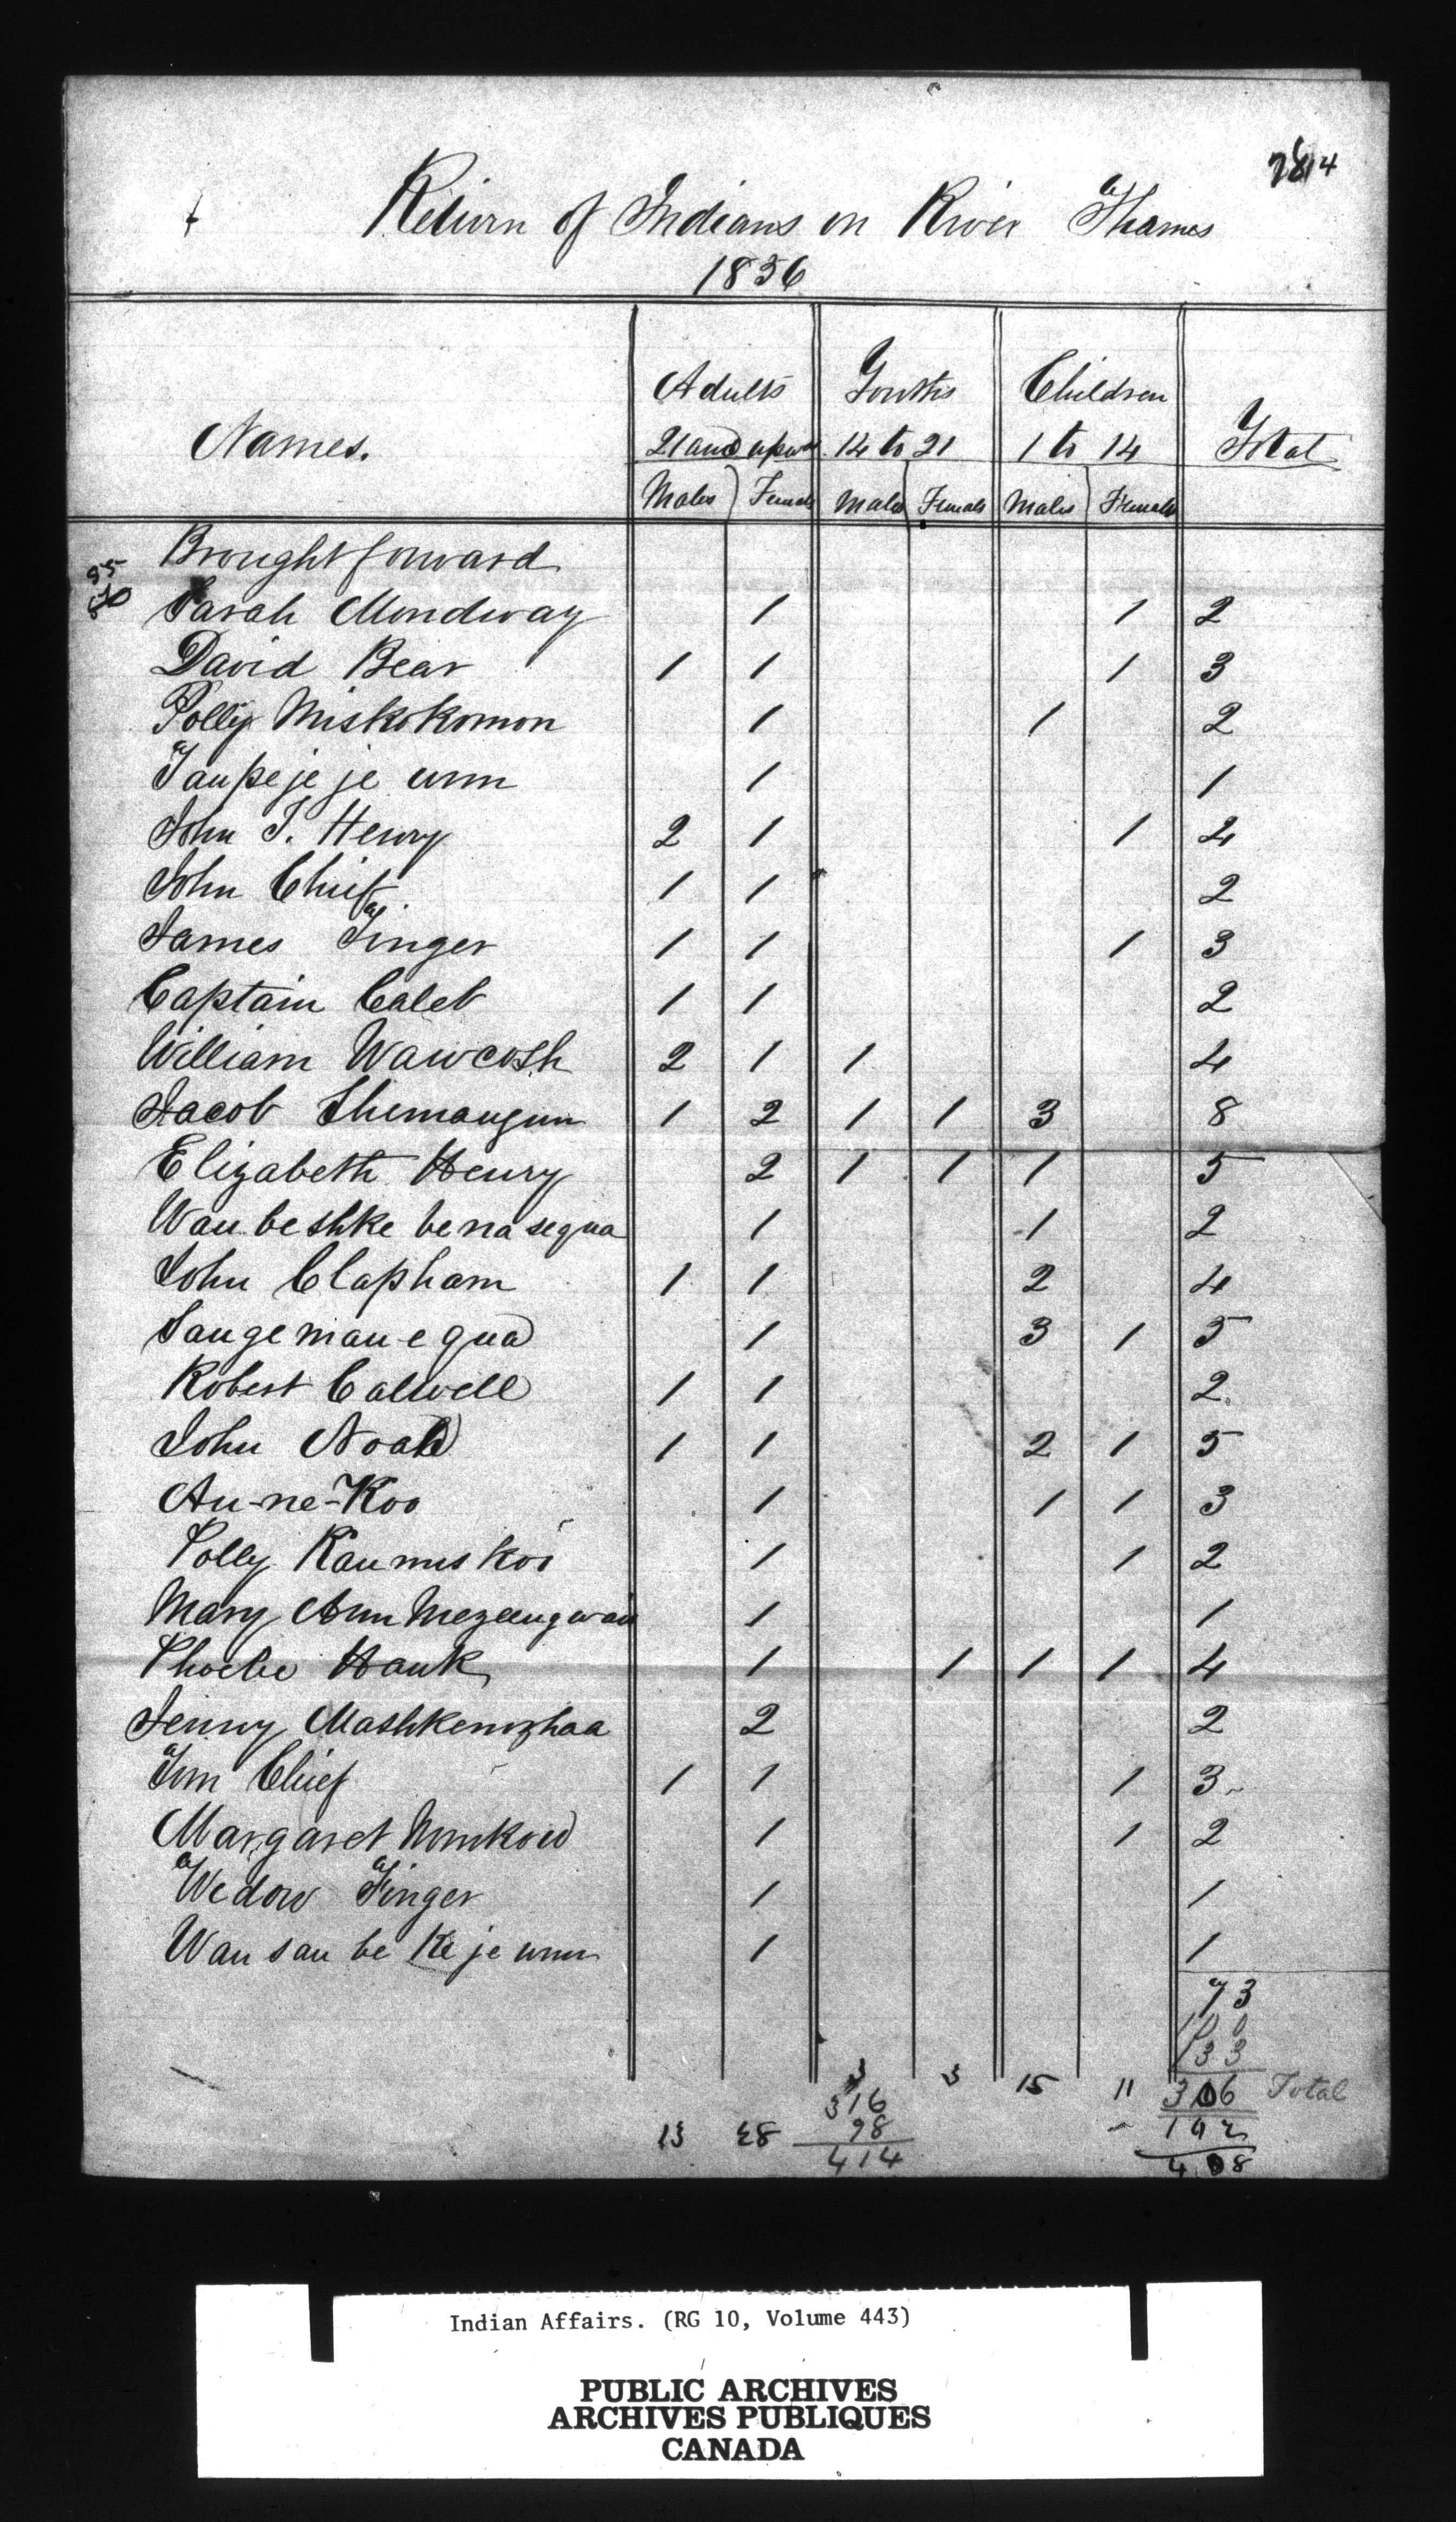 7814
Return of Indians on River Thames
1856
Names. Adults Youths Children Total
21 and upwds 14 to 21 1 to 14
Males Females Males Females Males Females
Brought forward
95
Sarah Mondway 1 1 2
David Bear 1 1 1 3
Polly Miskokomon 1 1 2
Taupe je je wm 1 1
John T. Henry 2 1 1 4
John Chief 1 1 2
James Finger 1 1 1 3
Captain Caleb 1 1 2
William Wawcosh 2 1 1 4
Jacob Shemaugun 1 2 1 1 3 8
Elizabeth Henry 2 1 1 1 5
Wau be shke be na se qua 1 1 2
John Clapham 1 1 2 4
Sauge mau e qua 1 3 1 5
Robert Calwell 1 1 2
John Noah 1 1 2 1 5
Au-ne-Koo 1 1 1 3
Polly Kaumuskoo 1 1 2
Mary Ann Mezeeugwain 1 1
Phoebe Hank 1 1 1 1 4
Jenny Mashkenozhaa 2 2
Tom Chief 1 1 1 3
Margaret 1 1 2
Wedow Finger 1 1
Wau sau be Ke je wun 1 1
73
100
133
3 3 15 11 306 Total
316
13 28 98 102
414 408
Indian Affairs. (RG 10, Volume 443)
PUBLIC ARCHIVES
ARCHIVES PUBLIQUES
CANADA